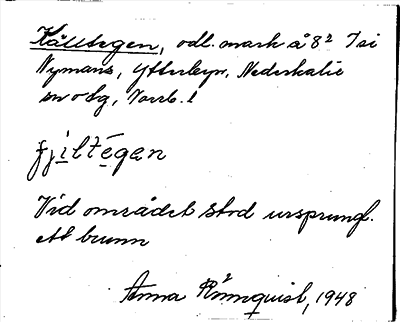 Källtegen, odl. mark å 8² I si
Nymans, Ytterbyn, Nederkalix
sn o tg, Norrb. l
fjiltégan
Vid området stod ursprungl.
ett brunn
Anna Rönnquist, 1948